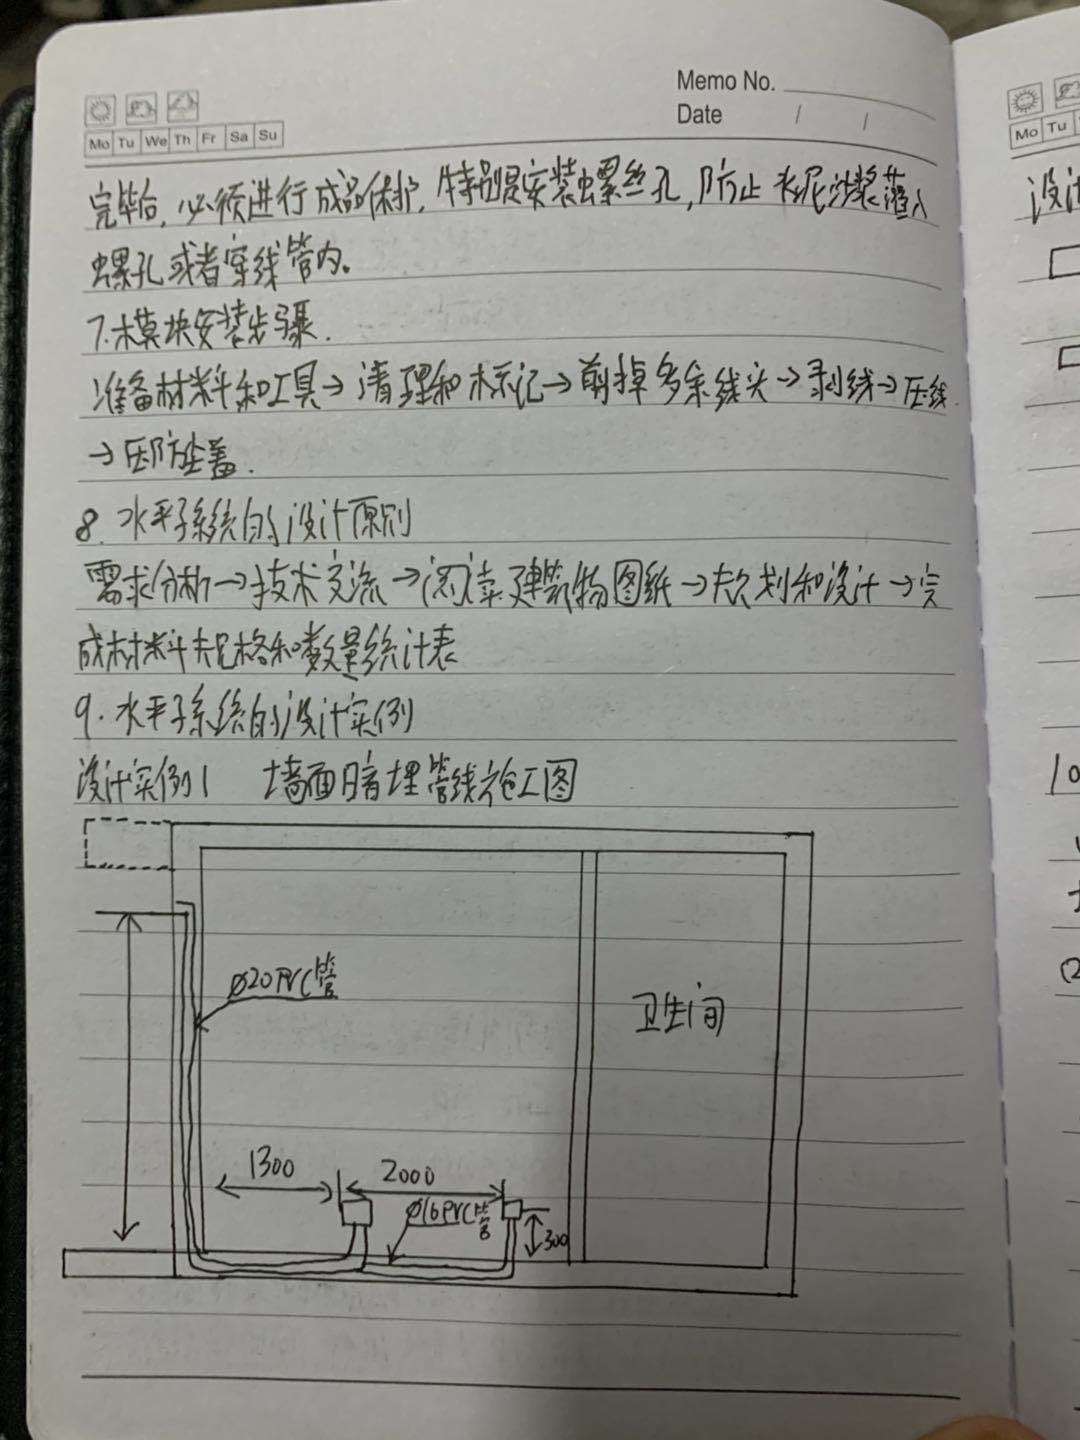 Memo No.
Date / /
Mo Tu We Th Fr Sa Su
完毕后,必须进行成品保护,特别是安装螺丝孔,防止水泥沙浆灌入
螺孔或者穿线管内。
7.模块安装步骤.
准备材料和工具→清理和标记→剪掉多余线头→剥线→压线
→压防尘盖.
8.水平子系统的设计原则
需求分析→技术交流→阅读建筑物图纸→规划和设计→完
成材料规格和数量统计表
9.水平子系统的设计实例
设计实例1 墙面暗埋管线施工图
ø20PVC管
卫生间
1300
2000
ø16PVC管
300
Mo Tu
设计
10